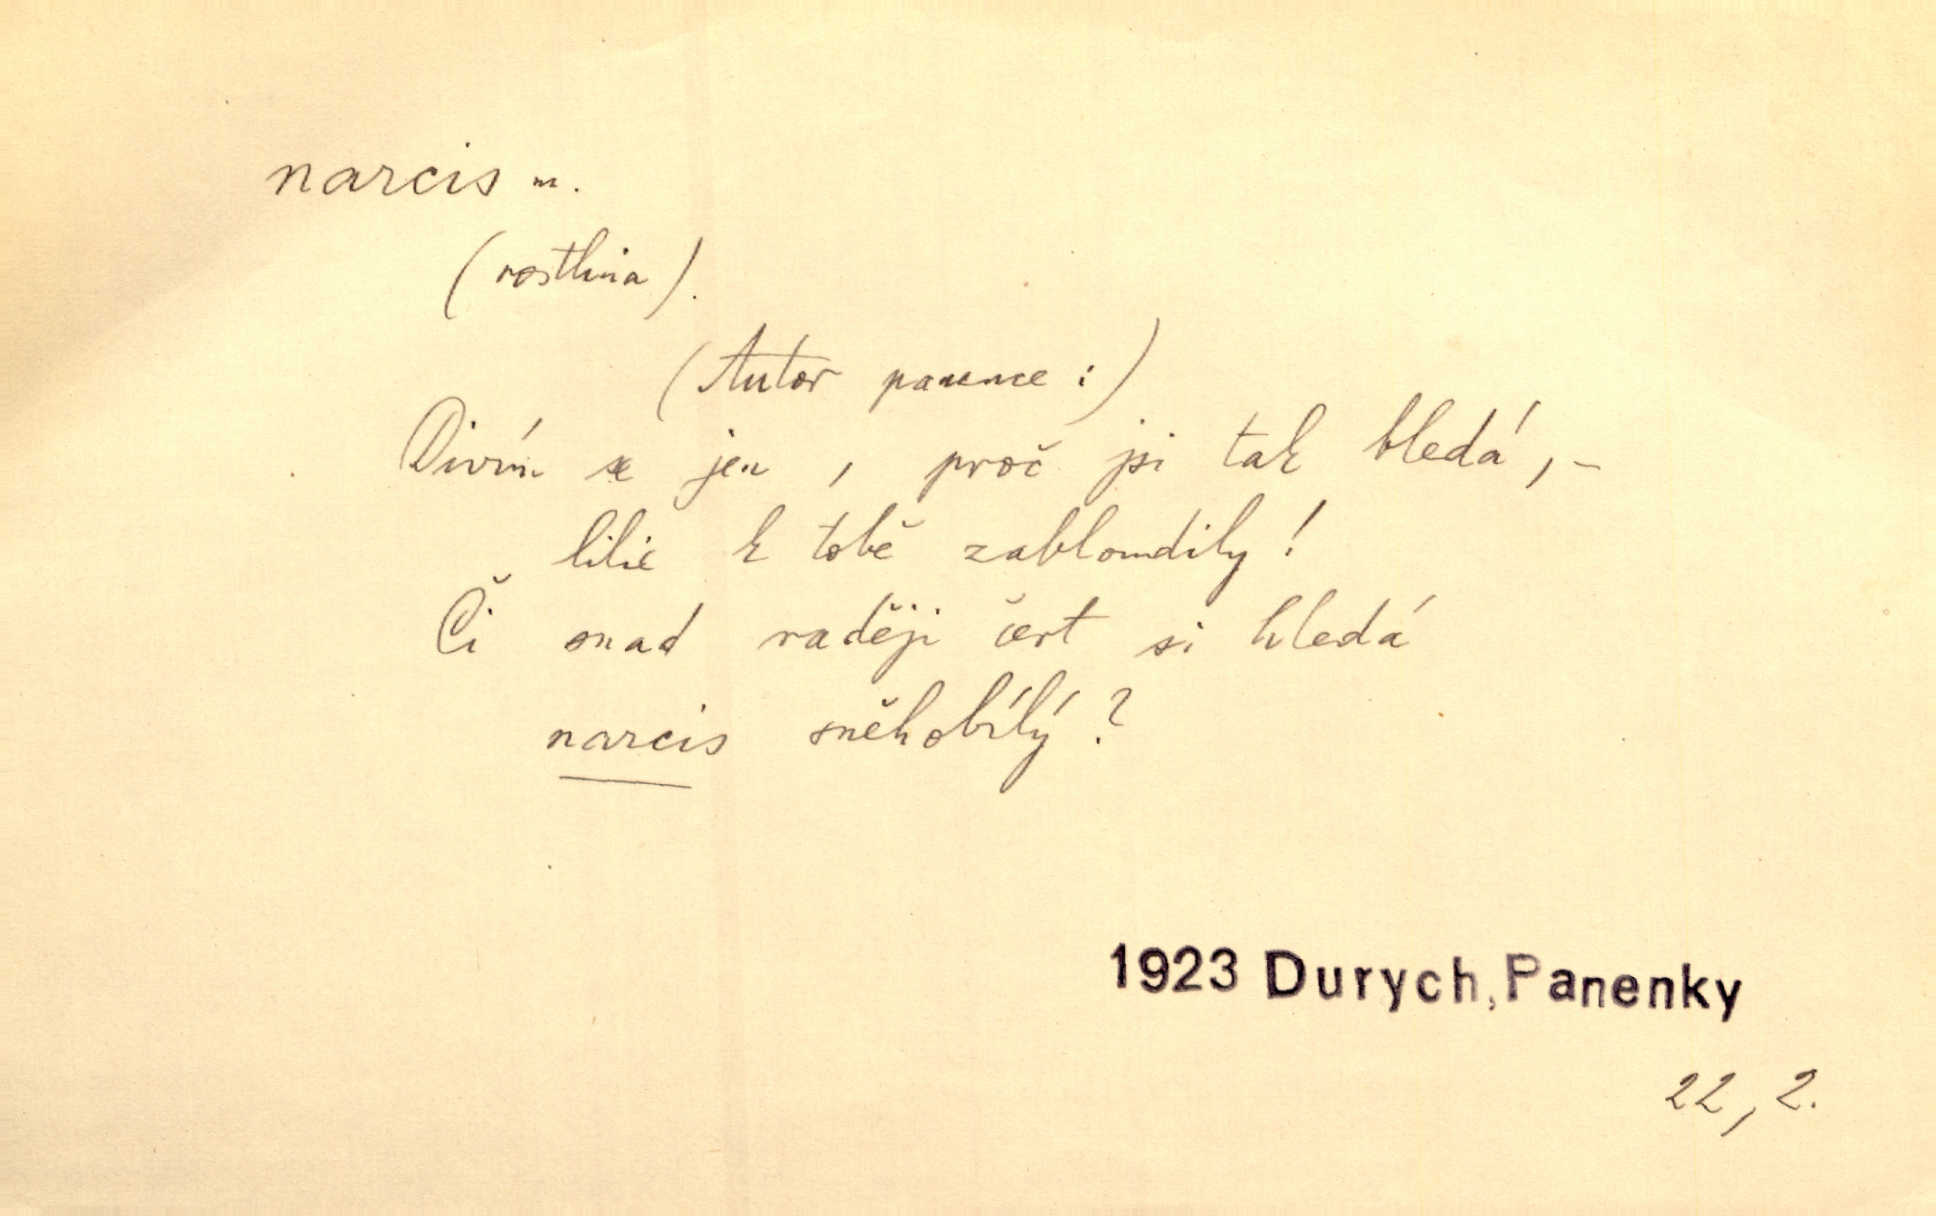 narcis m.
(rostlina).
(Autor panence:)
Divím se jen, proč jsi tak bledá,–
lilie k tobě zabloudily!
Či snad raději čert si hledá
narcis sněhobílý?
1923 Durych, Panenky
22, 2.